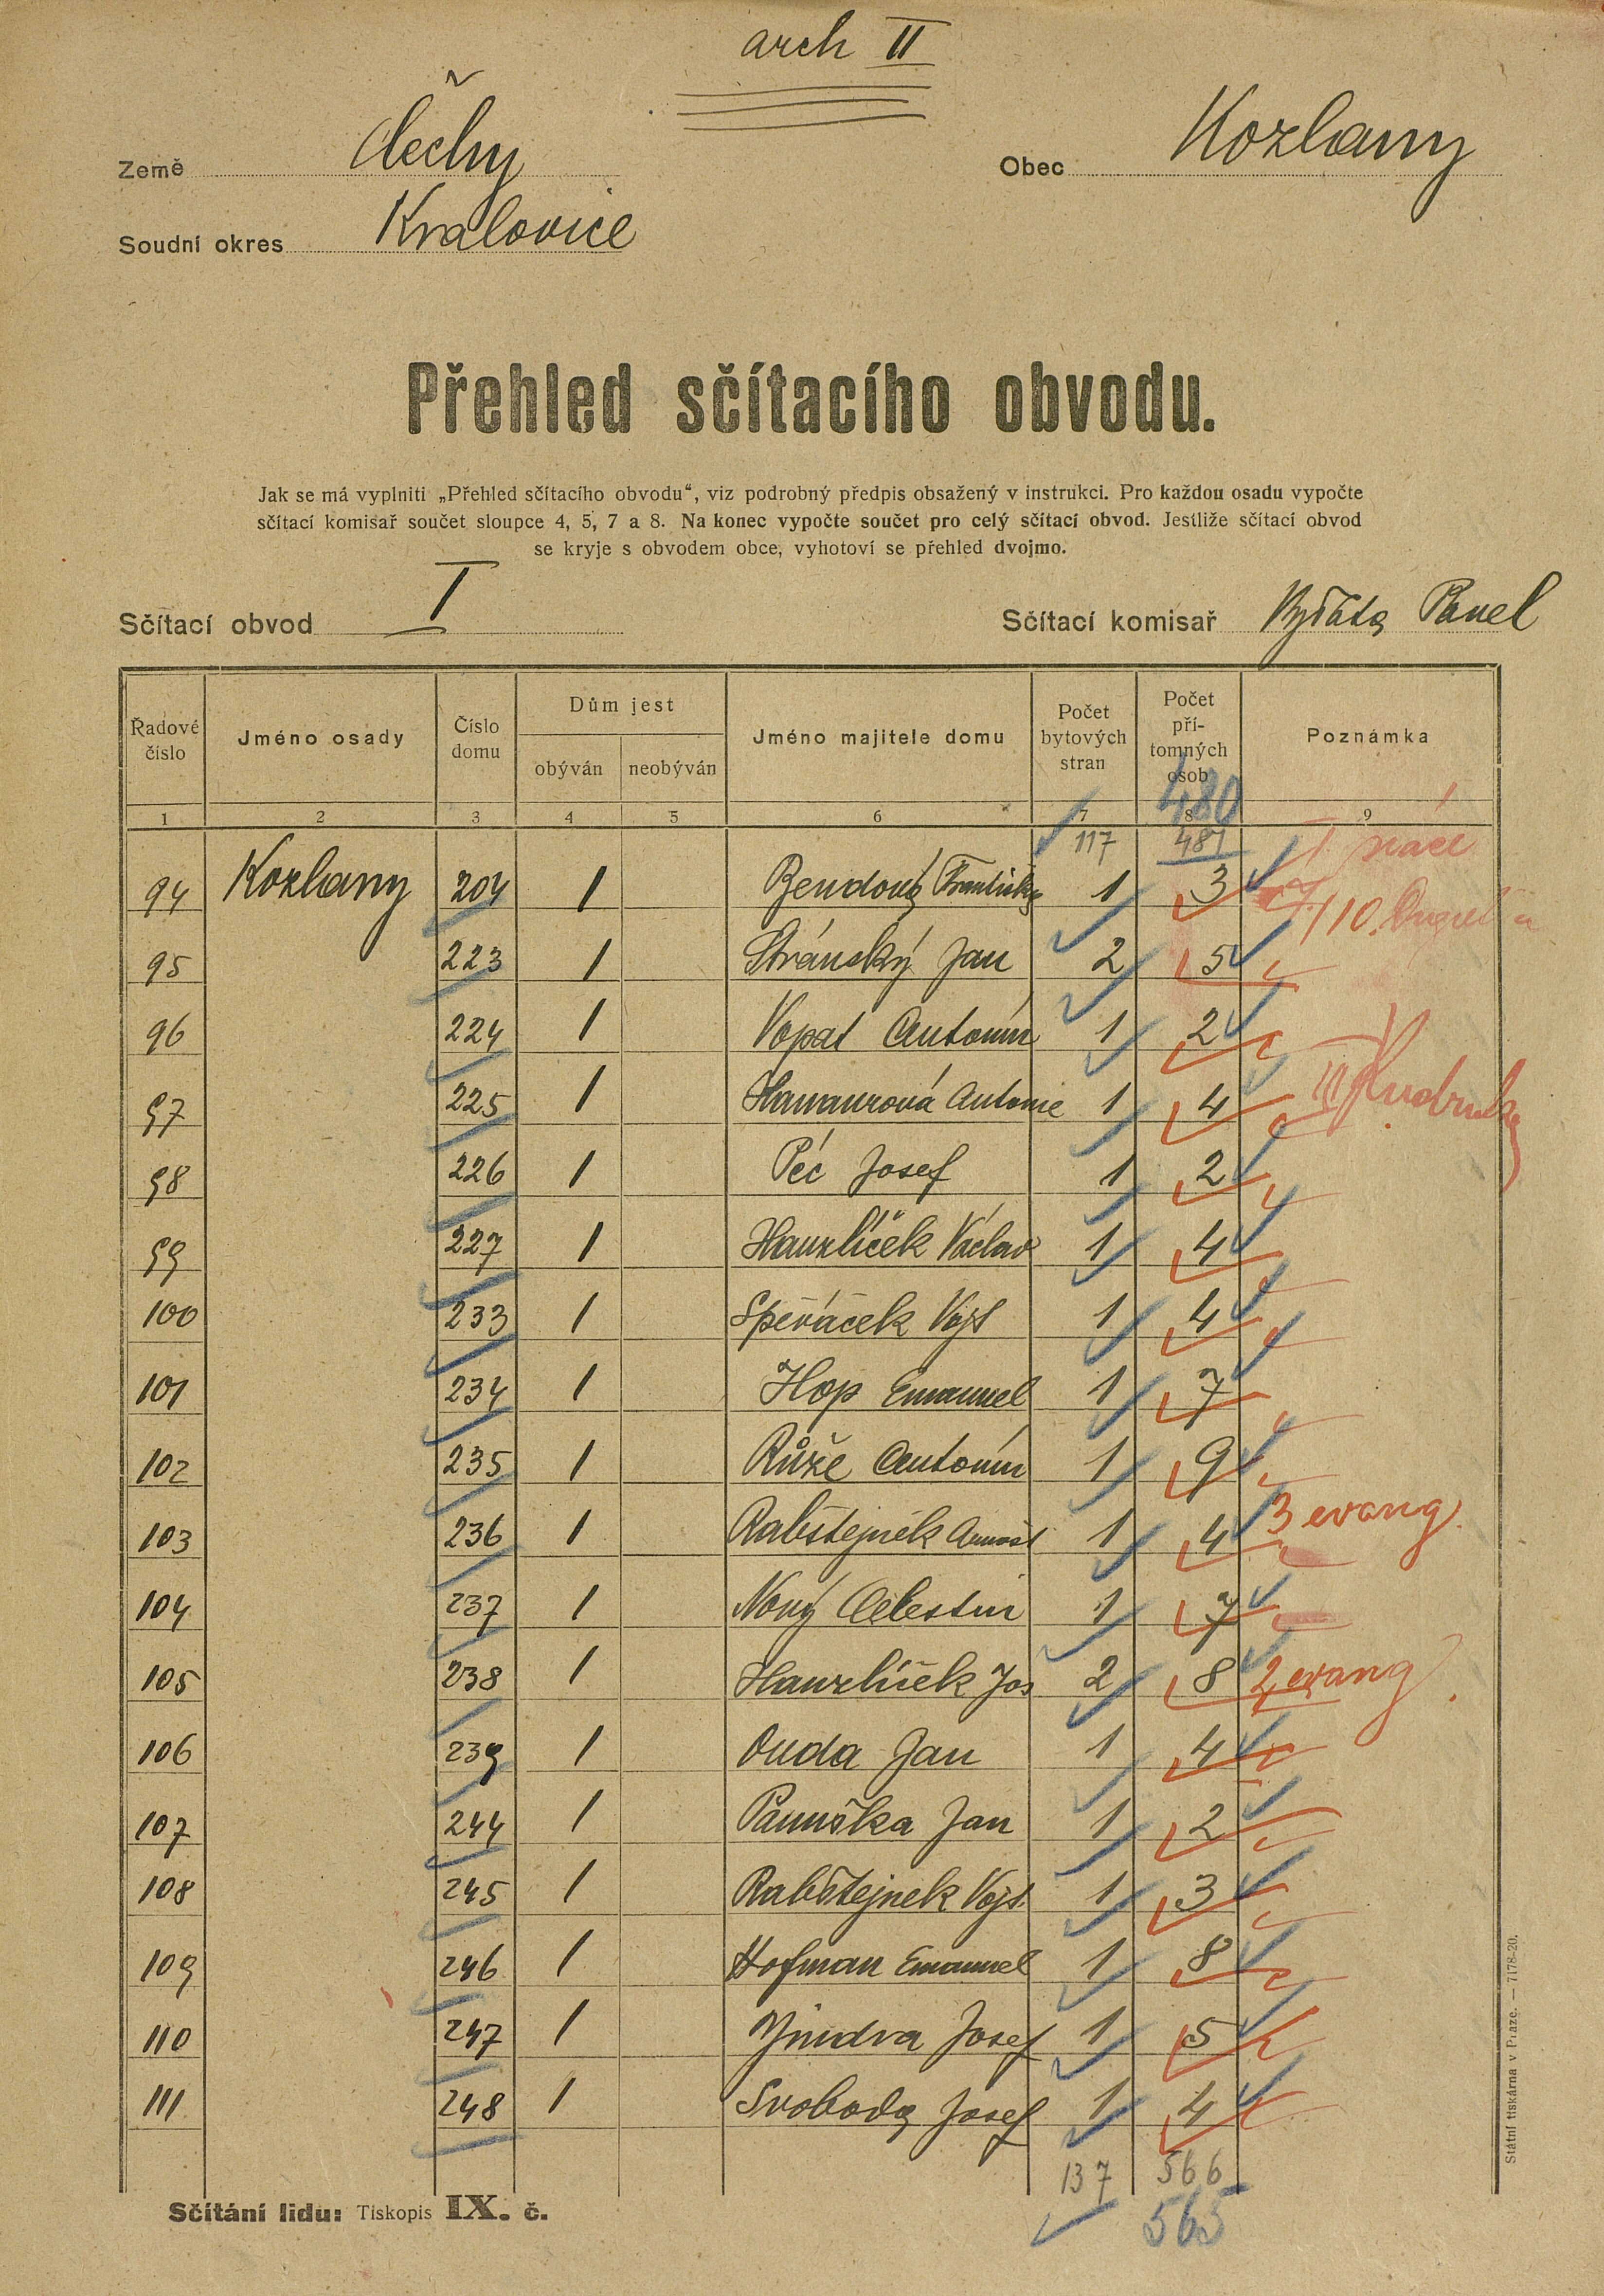 arch II
Země Čechy
Obec Kozlany
Soudní okres Kralovice
Přehled sčítacího obvodu.
Jak se má vyplniti „Přehled sčítacího obvodu“, viz podrobný předpis obsažený v instrukci. Pro každou osadu vypočte
sčítací komisař součet sloupce 4, 5, 7 a 8. Na konec vypočte součet pro celý sčítací obvod. Jestliže sčítací obvod
se kryje s obvodem obce, vyhotoví se přehled dvojmo.
Sčítací obvod I
Sčítací komisař Pavel
Řadové číslo Jméno osady Číslo domu Dům jest obýván neobýván Jméno majitele domu Počet bytových stran Počet přítomných osob Poznámka
480
1 2 3 4 5 6 7 8 9
117 481 I
94 Kozlany 204 1 1 3
110.
95 223 1 Stránský Jan 2 5
96 224 1 Vopat Antonín 1 2
97 225 1 Antonie 1 4 III
98 226 1 Péc Josef 1 2
99 227 1 Hanzlíček Václav 1 4
100 233 1 Spěváček Vojt 1 4
101 234 1 Hop Emanuel 1 7
102 235 1 Růže Antonín 1 9
103 236 1 Rabštejnek Arnošt 1 4 3 evang.
104 237 1 Nový Celestin 1 7
105 238 1 Hanzlíček Jos 2 8 2 evang.
106 239 1 Ouda Jan 1 4
107 244 1 Panuška Jan 1 2
108 245 1 Rabštejnek Vojt. 1 3
109 246 1 Hofman Emanuel 1 8
110 247 1 Jindra Josef 1 5
111 248 1 Svoboda Josef 1 4
137 566
565
Sčítání lidu: Tiskopis IX. č.
Státní tiskárna v Praze. — 7178-20.